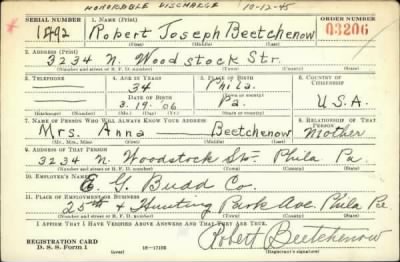 HONORABLE DISCHARGE 10-12-45
SERIAL NUMBER 1. NAME (Print) ORDER NUMBER
1892 Robert Joseph Beetchenow 03206
(First) (Middle) (Last)
2. ADDRESS (Print)
3234 N. Woodstock Str.
(Number and street or R. F. D. number) (Town) (County) (State)
3. TELEPHONE 4. AGE IN YEARS 5. PLACE OF BIRTH 6. COUNTRY OF CITIZENSHIP
34 Phila.
DATE OF BIRTH (Town or county)
3. 19. 06 Pa. U.S.A.
(Exchange) (Number) (Mo.) (Day) (Yr.) (State or country)
7. NAME OF PERSON WHO WILL ALWAYS KNOW YOUR ADDRESS 8. RELATIONSHIP OF THAT PERSON
Mrs. Anna Beetchenow Mother
(Mr., Mrs., Miss) (First) (Middle) (Last)
9. ADDRESS OF THAT PERSON
3234 N. Woodstock Str. Phila Pa.
(Number and street or R. F. D. number) (Town) (County) (State)
10. EMPLOYER'S NAME
E. G. Budd Co.
11. PLACE OF EMPLOYMENT OR BUSINESS
25th & Hunting Park Ave. Phila Pa
(Number and street or R. F. D. number) (Town) (County) (State)
I AFFIRM THAT I HAVE VERIFIED ABOVE ANSWERS AND THAT THEY ARE TRUE.
REGISTRATION CARD
D. S. S. Form 1 (over) 16-17105
Robert Beetchenow
(Registrant's signature)